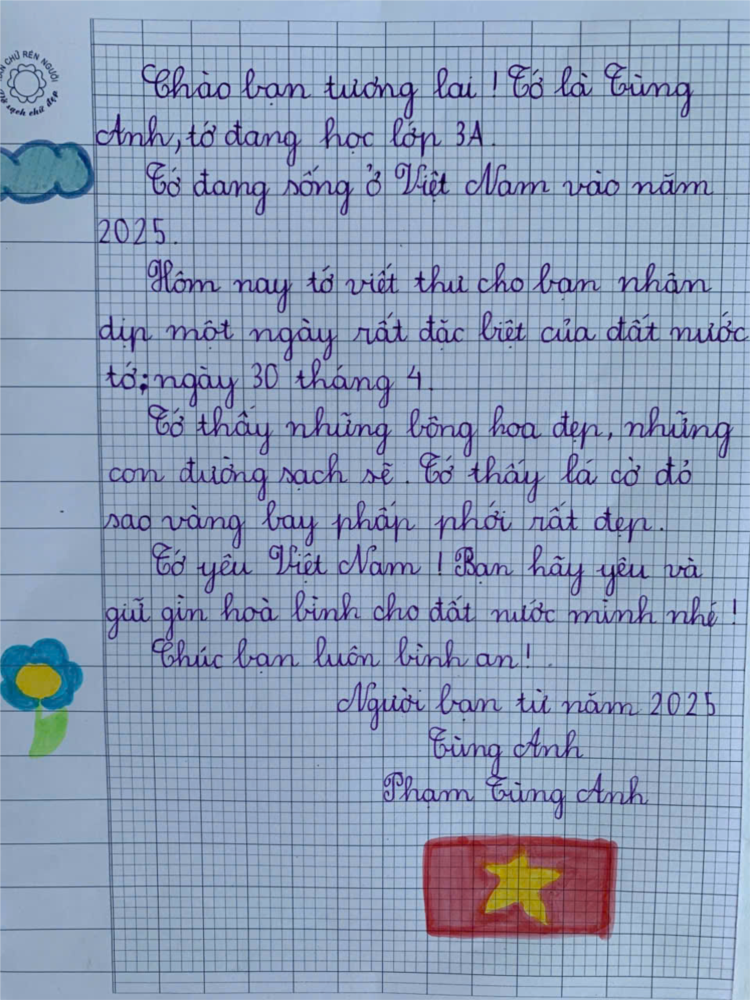 CHỮ RÈN NGƯỜI
sạch chữ đẹp
Chào bạn tương lai ! Tớ là Tùng
Anh, tớ đang học lớp 3A.
Tớ đang sống ở Việt Nam vào năm
2025.
Hôm nay tớ viết thư cho bạn nhân
dịp một ngày rất đặc biệt của đất nước
tớ: ngày 30 tháng 4.
Tớ thấy những bông hoa đẹp, những
con đường sạch sẽ. Tớ thấy lá cờ đỏ
sao vàng bay phấp phới rất đẹp.
Tớ yêu Việt Nam ! Bạn hãy yêu và
giữ gìn hoà bình cho đất nước mình nhé !
Chúc bạn luôn bình an !
Người bạn từ năm 2025
Tùng Anh
Phạm Tùng Anh